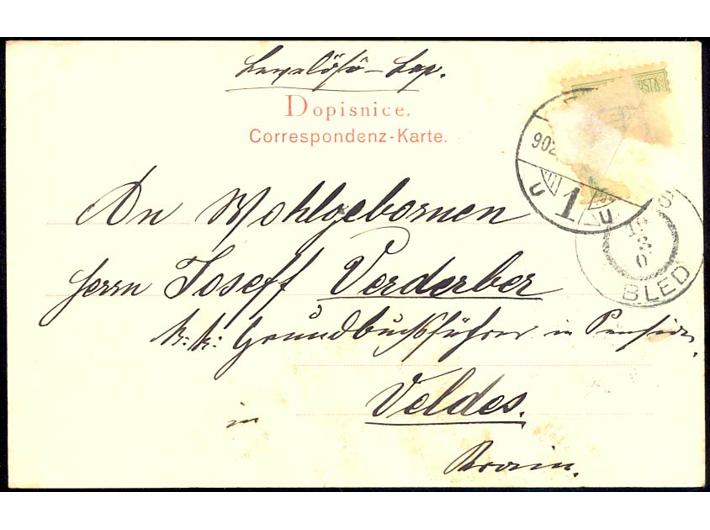 Levelőső-Lap.
Dopisnice.
Correspondenz-Karte.
POSTA
902
1
U U
An Wohlgebornen
Herrn Joseff Verderber
k: k: Grundbuchsführer in Pension,
in Veldes.
Krain.
BLED